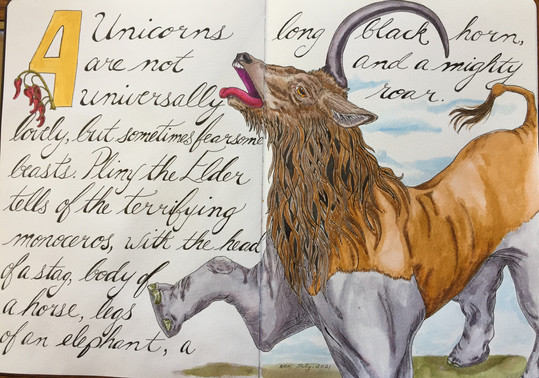 A Unicorns
are not
universally
lovely, but sometimes fearsome
beasts. Pliny the Elder
tells of the terrifying
monoceros, with the head
of a stag, body of
a horse, legs
of an elephant, a
long black horn,
and a mighty
roar.
July, 2021